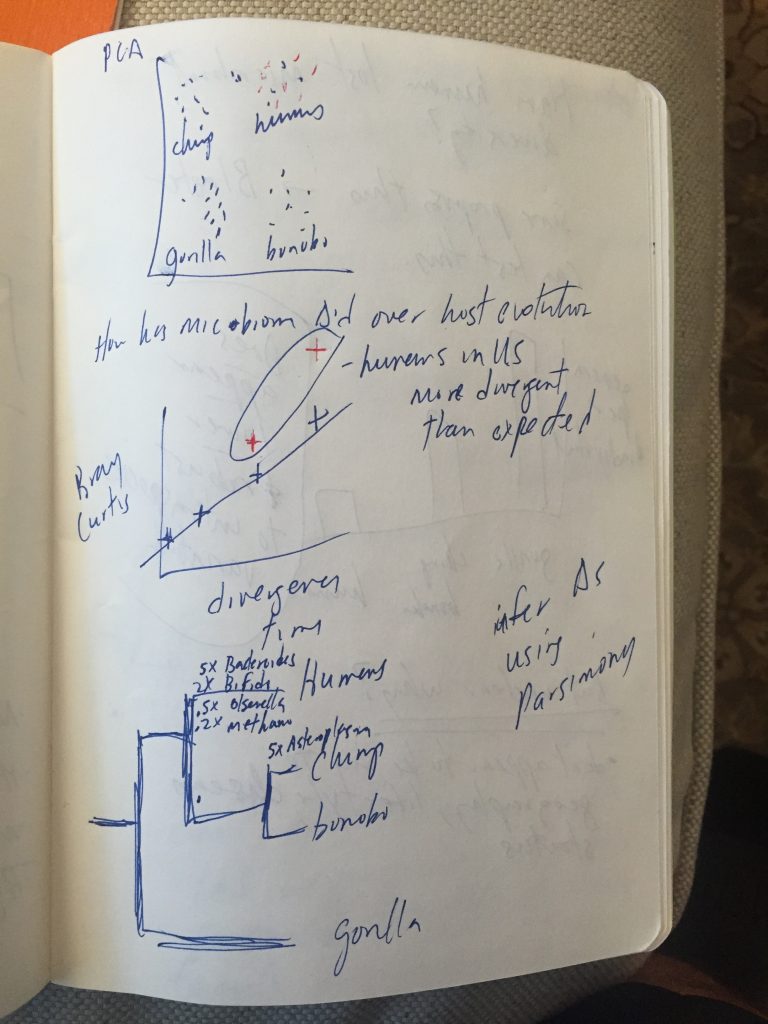 PCA
chimp
humans
gorilla
bonobo
How has microbiom Δ'd over host evolution
- humans in US
more divergent
than expected
Bray
Curtis
divergence
time
infer Δs
using
parsimony
5x Bacteroides
2x Bifido
.5x Olsenella
.2x methano
Humans
5x
Chimp
bonobo
gorilla